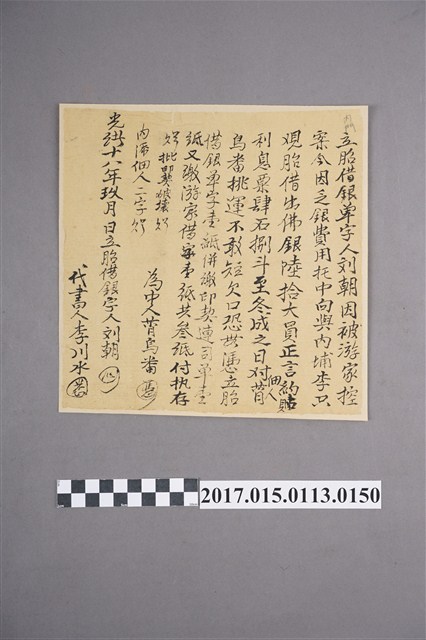 立胎借銀单字人刘朝因被游家控
案今因乏銀費用托中向與内埔李只
覌胎借出佛銀陸拾大員正言約貼
利息粟肆石捌斗至冬成之日对莆
佃人
烏番挑運不敢短欠口恐無憑立胎
借銀单字壹紙併繳印契連司单壹
紙又繳游家借字壹紙共叁紙付执存
炤批契
炤
内添佃人二字炤
為中人莆烏番
光緒十八年玖月 日立胎借銀字人刘朝
代書人李川水
2017.015.0113.0150